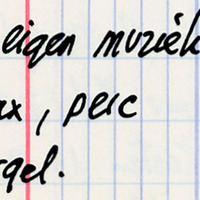 eigen muziek
ax, perc
rgel.